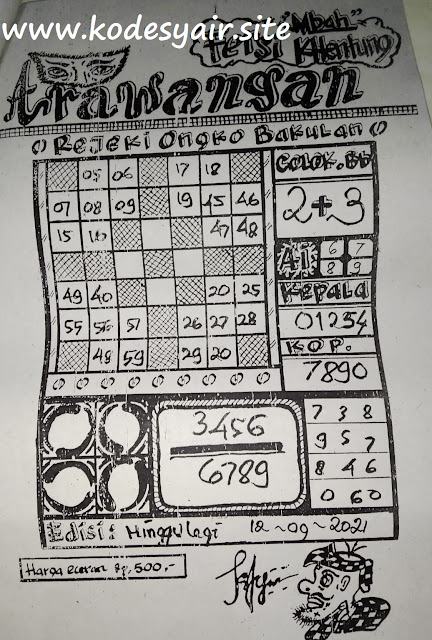 www.kodesyair.site
"Mbah"
Arawangan
Rejeki Ongko Bakulan
05 06 17 18
07 08 09 19 45 46
15 16 47 48
49 40 20 25
55 56 57 26 27 28
49 59 29 20
COLOK.BB
2+3
AI 6 7
8 9
KEPALA
01234
KOP.
7890
3456
6789
7 3 8
9 5 7
8 4 6
0 6 0
Edisi: Minggu Legi 12-09-2021
Harga eceran Rp, 500,-